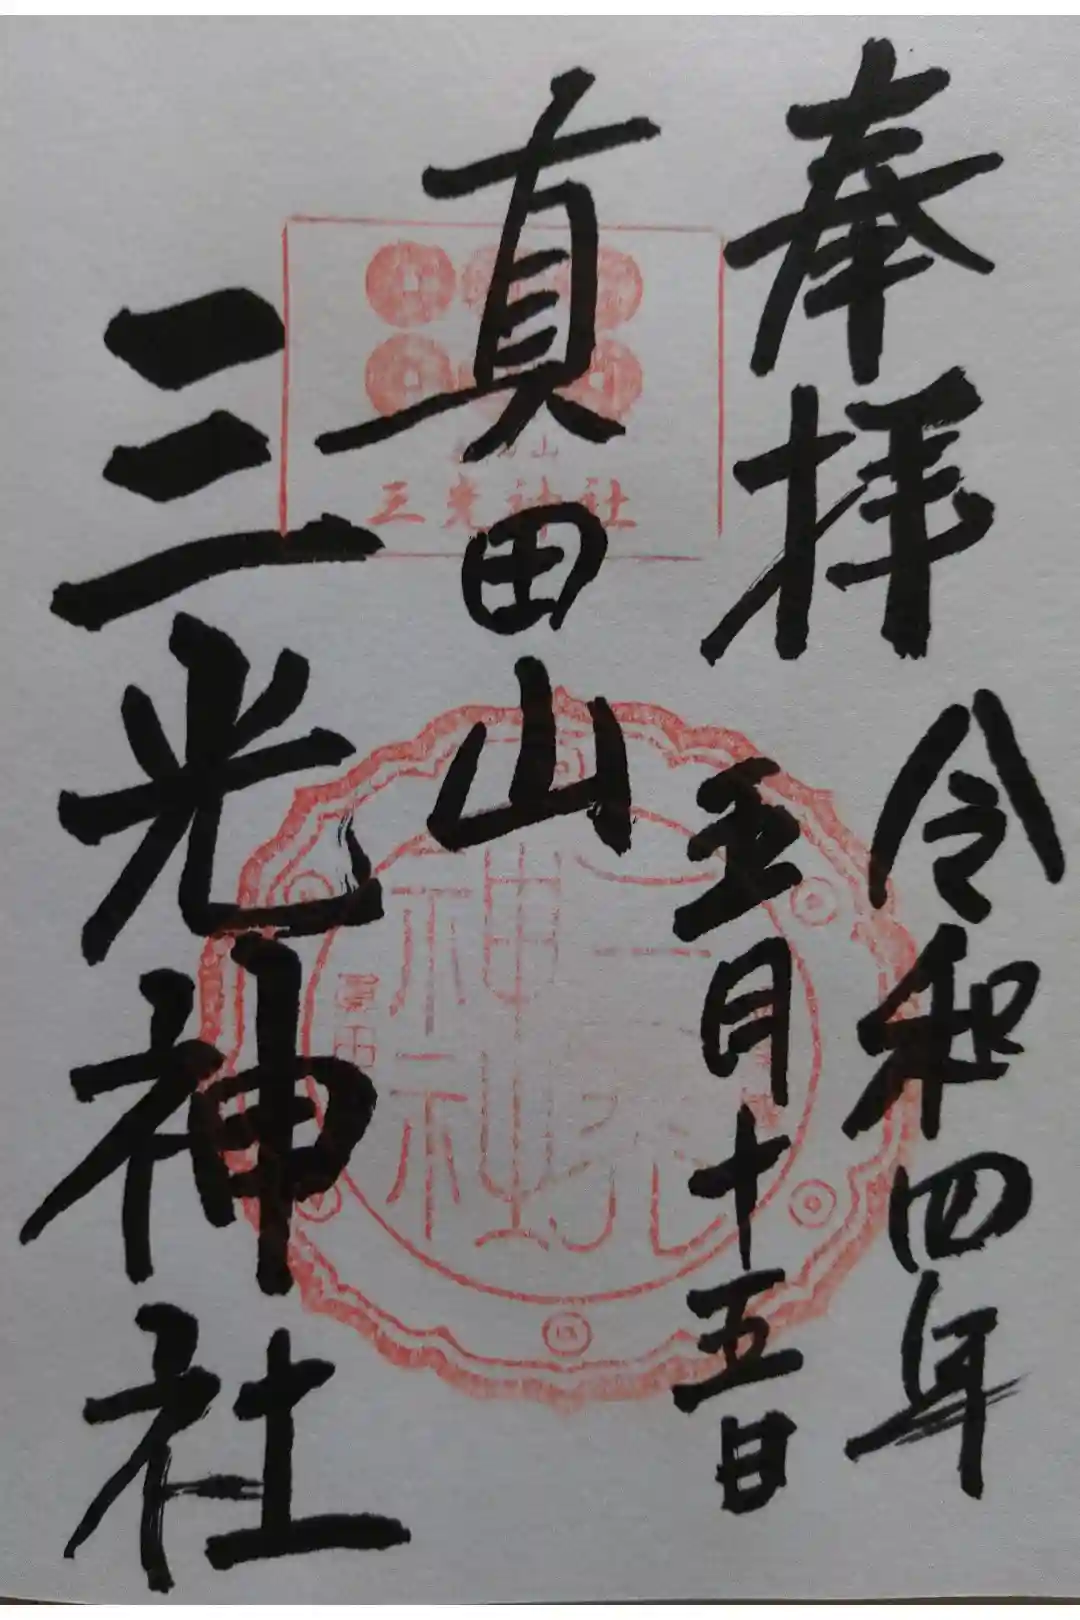 奉拝
令和四年
五月十五日
真田山
三光神社
山
三光神社
三光神社